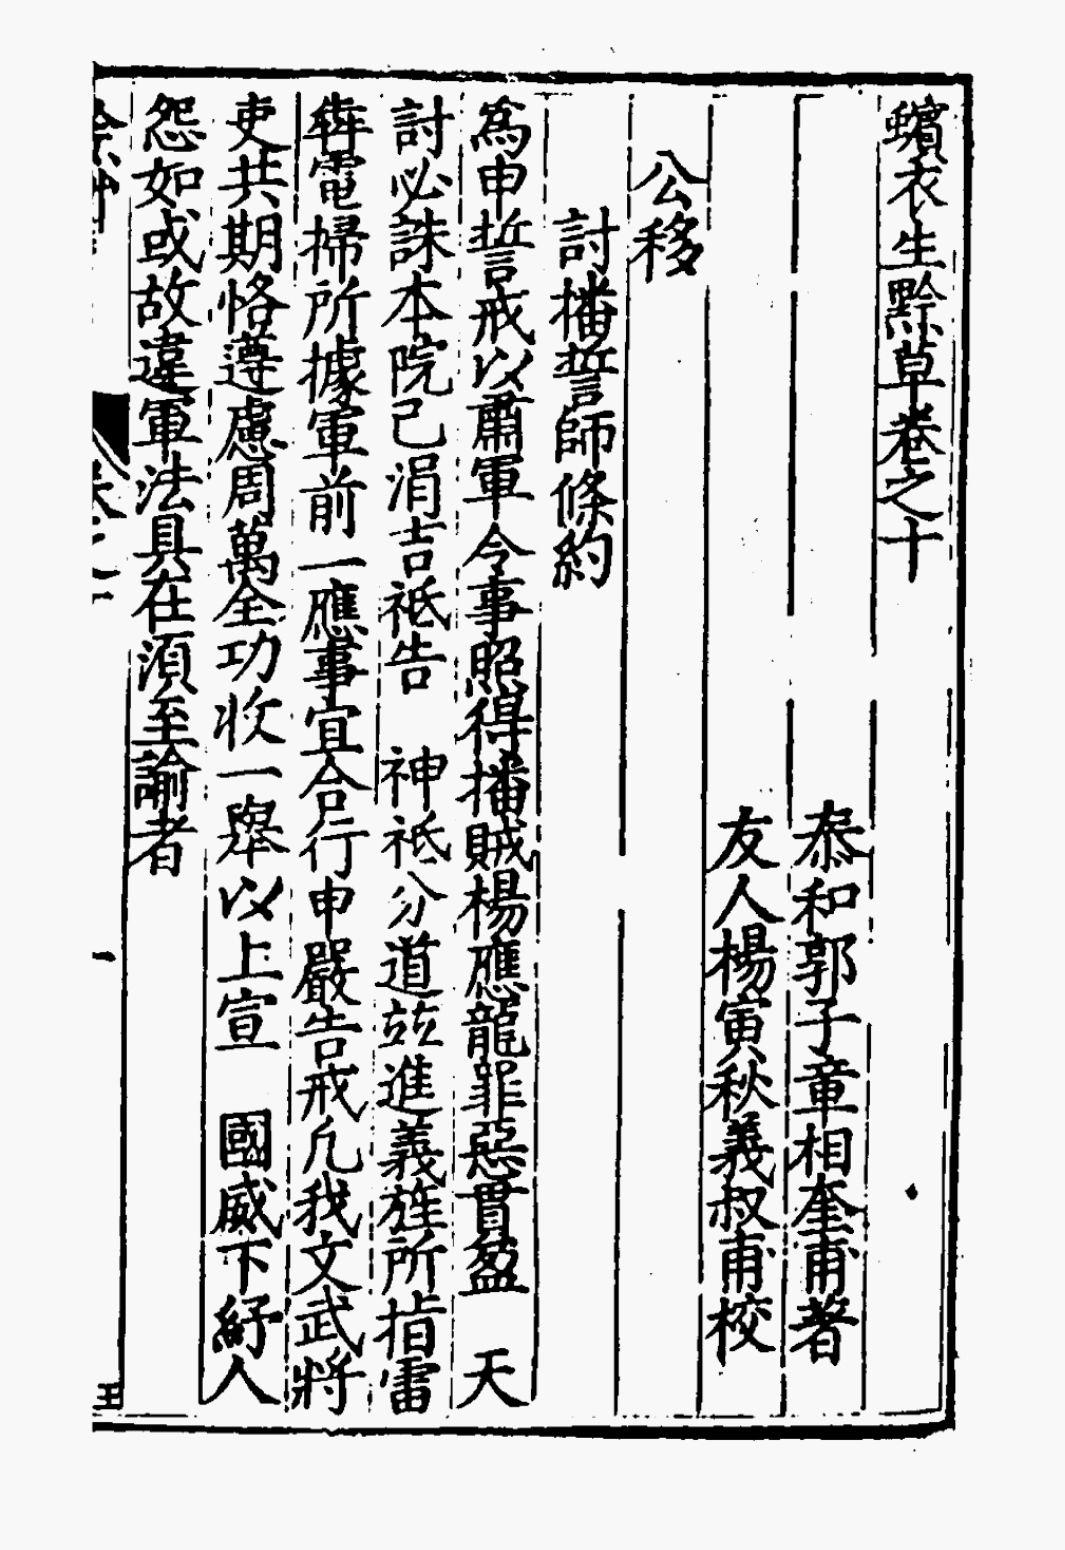 蠙衣生黔草卷之十
泰和郭子章相奎甫著
友人楊寅秋義叔甫校
公移
討播誓師條約
為申誓戒以肅軍令事照得播賊楊應龍罪惡貫盈　天
討必誅本院已涓吉祇告　神祇分道並進義旌所指雷
犇電掃所據軍前一應事宜合行申嚴告戒凡我文武將
吏共期恪遵慮周萬全功收一舉以上宣　國威下紓人
怨如或故違軍法具在須至諭者